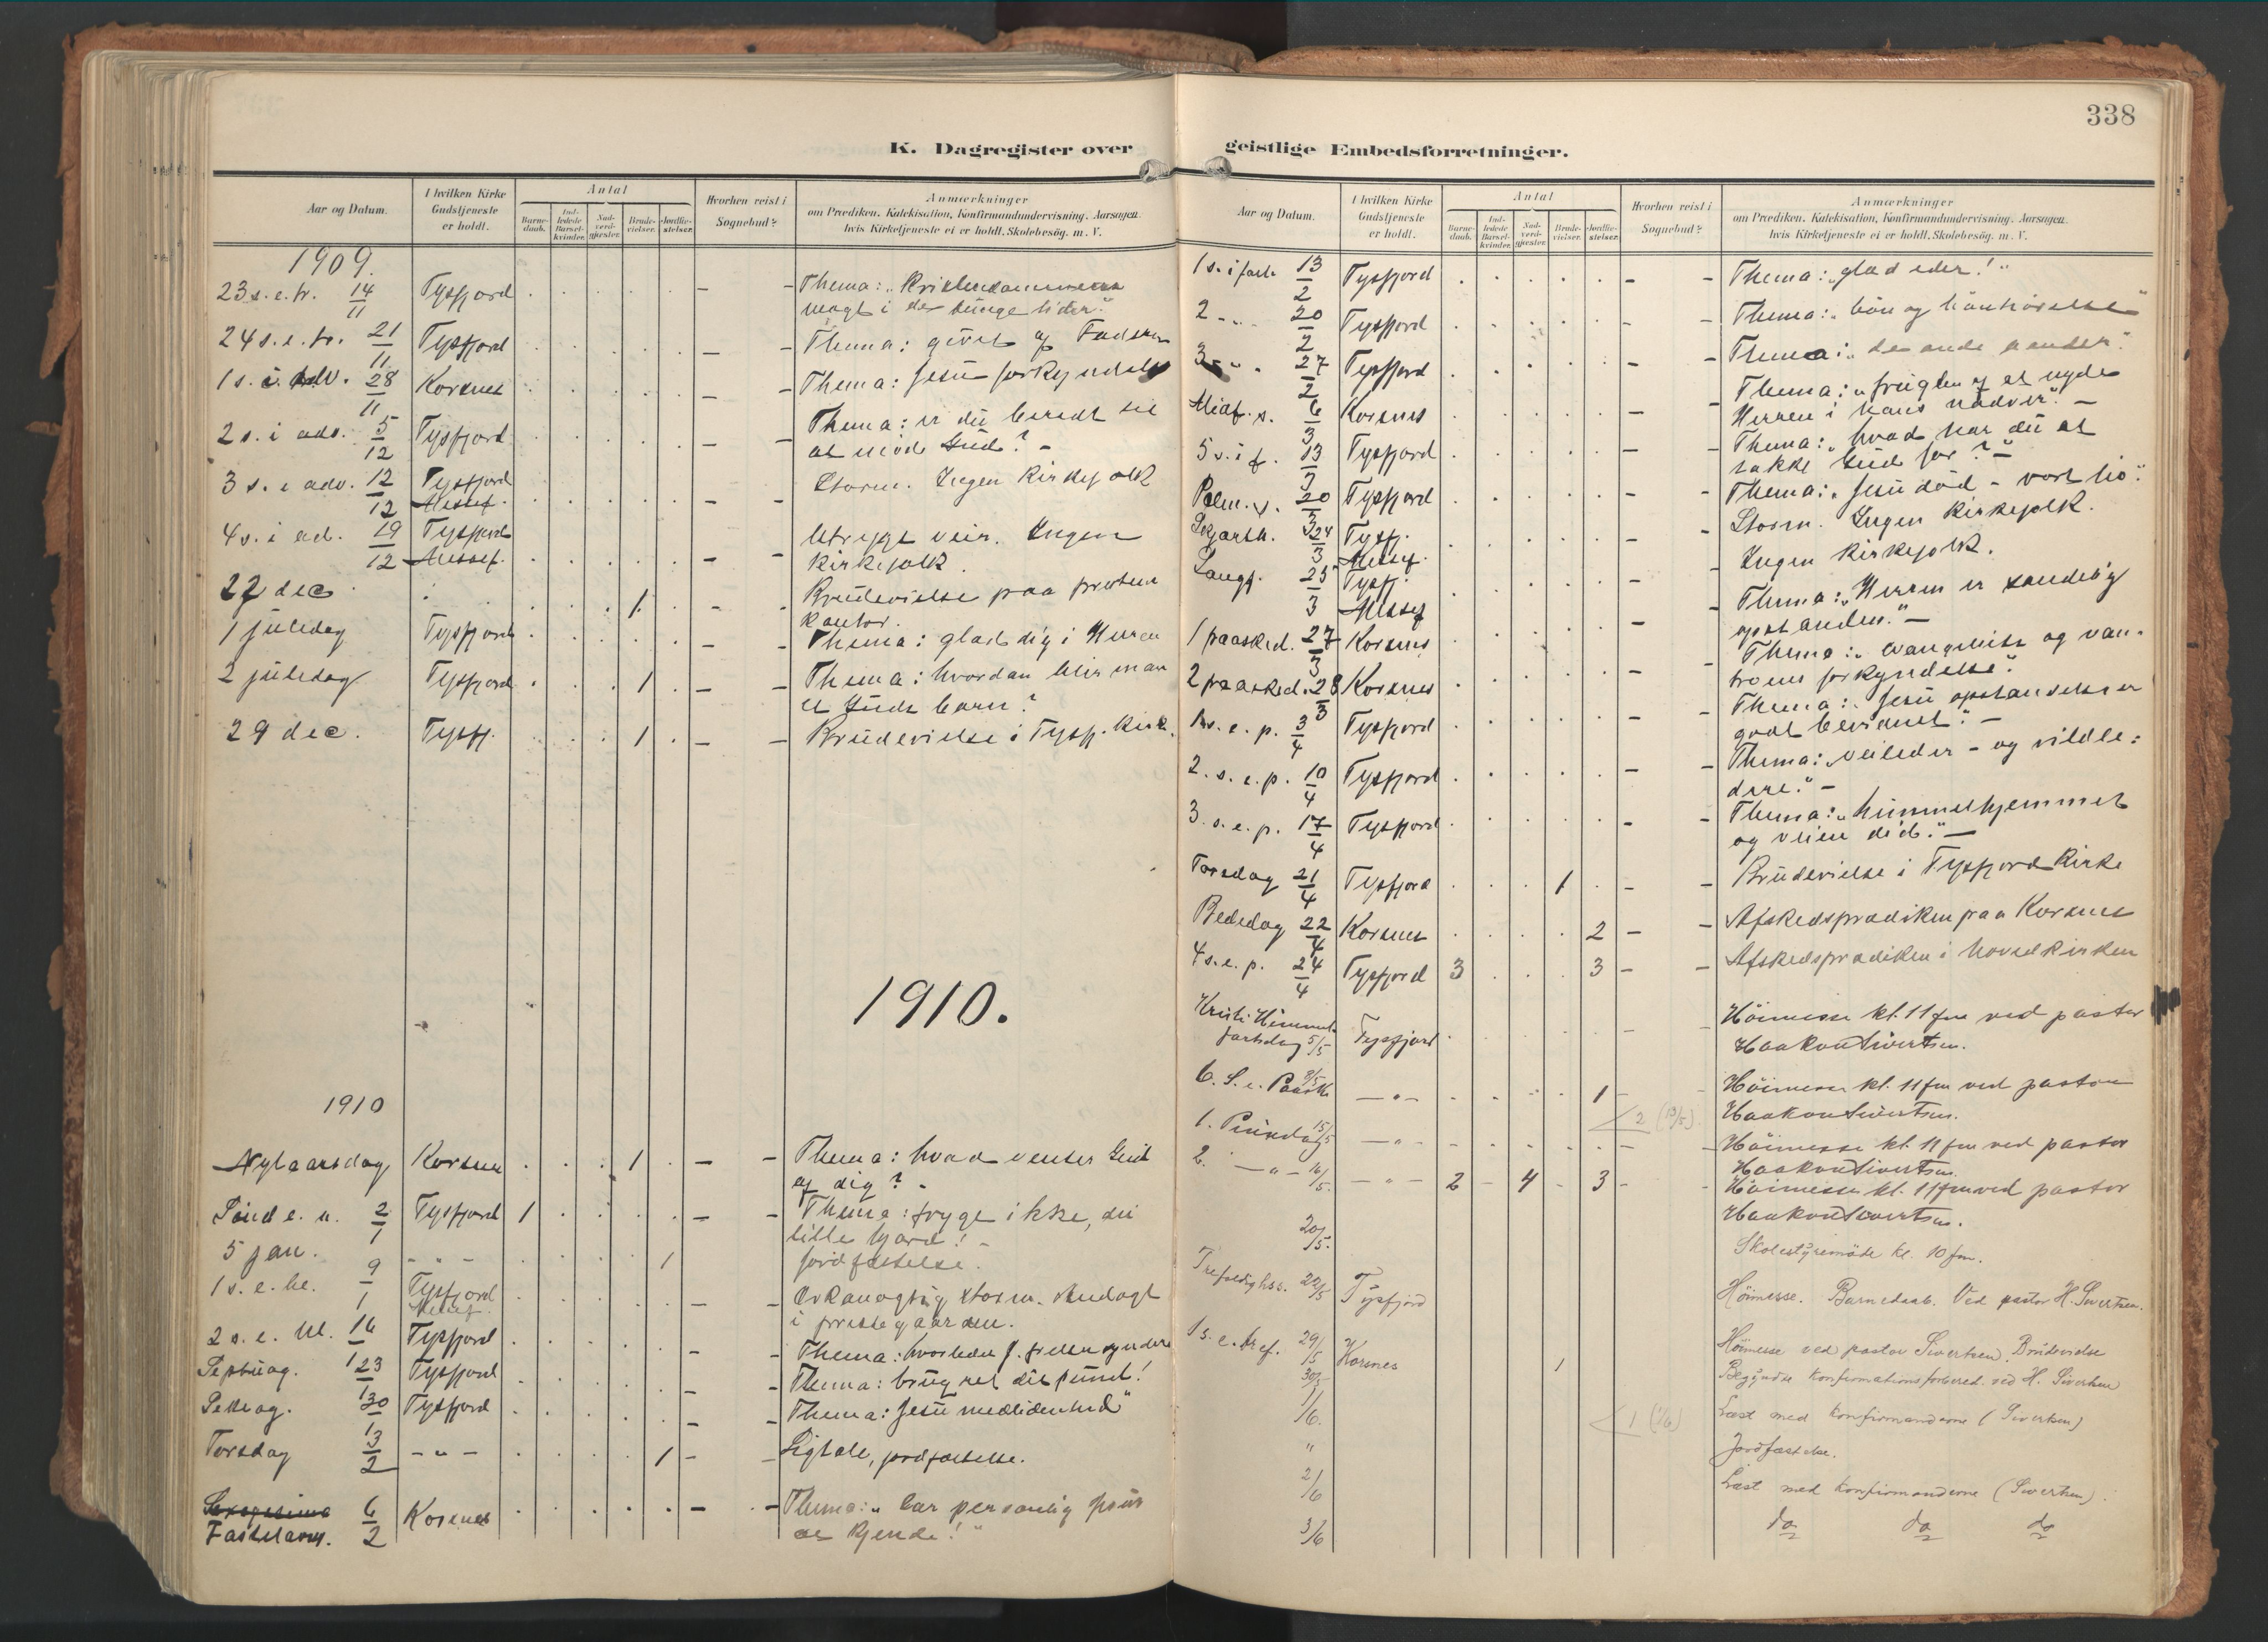 K. Dagregister over
Aar og Datum. I hvilken Kirke Gudstjeneste er holdt. Antal Barne-daab. Ind-ledede Barsel-kvinder. Nad-verd-gjester. Brude-vielser. Jordfæ-stelser. Hvorhen reist i Sognebud? Anmærkninger om Prædiken. Katekisation, Konfirmandundervisning. Aarsagen. hvis Kirketjeneste ei er holdt. Skolebesög. m. V.
1909.
23 s. e. tr. 14/11 Tysfjord - Thema: "Kristendommens
magt i de tunge tider."
24 s. e. tr. 21/11 Tysfjord - - Thema: givet af Faderen
1 s. i adv. 28/11 Korsnes - - Thema: Jesu forkyndelse
2 s. i adv. 5/12 Tysfjord - - Thema: er du beredt til
at møde Gud? -
3 s. i adv. 12/12 Tysfjord Messef. Storm. Ingen Kirkefolk
4 s. i ad. 19/12 Tysfjord Messef. - - Utrygt veir. Ingen
Kirkefolk.
27 dec 1 - - Brudevielse paa prestens
kontor.
1 juledag Tysfjord - - Thema: glæd dig i Herren
2 juledag Tysfjord 1 - - Thema: hvordan blir man
et Guds barn?
29 dec. Tysfj. 1 - - Brudevielse i Tysfj. Kirke.
1910.
1910
Nytaarsdag Korsnes 1 - - Thema: hvad venter Gud
af dig? -
Sönd e. n. 2/1 Tysfjord 1 - - Thema: frygt ikke, du
lille hjord! -
5 jan. - " - 1 jordfæstelse.
1 s. e. hl. 9/1 Tysfjord Messef. - - Orkanagtig storm. Andagt
i prestegaarden.
2 s. e. hl. 16/1 Tysfjord - - Thema: hvorledes J. frelser syndere
Septuag. 23/1 Tysfjord - - Thema: brug ret dit pund!
Seksag. 30/1 Tysfjord - - Thema: Jesu medlidenhed"
Torsdag 3/2 - " - 1 - - Ligtale, jordfæstelse.
Sexagesima
Fastelavns. 6/2 Korsnes - - Thema: "Lær personlig Jesus
at kjende!"
338
geistlige Embedsforretninger.
Aar og Datum. I hvilken Kirke Gudstjeneste er holdt. Antal Barne-daab. Ind-ledede Barsel-kvinder. Nad-verd-gjester. Brude-vielser. Jordfæ-stelser. Hvorhen reist i Sognebud? Anmærkninger om Prædiken. Katekisation, Konfirmandundervisning. Aarsagen. hvis Kirketjeneste ei er holdt. Skolebesög. m. V.
1 s. i faste 13/2 Tysfjord - - Thema: "glæd eder!"
2 - " - 20/2 Tysfjord - - Thema: "bön og bönhörelse"
3 - " - 27/2 Tysfjord - - Thema: "de onde aander."
Midf. s. 6/3 Korsnes - - Thema: "frugten af at nyde
Herren i hans nadver." -
5 s. i f. 13/3 Tysfjord - - Thema: "hvad har du at
takke Gud for?" -
Palm. s. 20/3 Tysfjord - - Thema: "Jesu död - vort liv."
Skjærth. 24/3 Tysfj. Messef. - Storm. Ingen Kirkefolk.
Langf. 25/3 Tysfj. Messef - - Ingen kirkefolk.
1 paasked. 27/3 Korsnes - - Thema: "Herren er sandelig
opstanden." -
2 paasked. 28/3 Korsnes - - Thema: "evangeliets og van-
troens forkyndelse."
1 s. e. p. 3/4 Tysfjord - - Thema: "Jesu opstandelse er
godt bevidnet." -
2. s. e. p. 10/4 Tysfjord - - Thema: "veileder - og vildle:
dere." -
3. s. e. p. 17/4 Tysfjord - - Thema: "himmelhjemmet
og veien did." -
Torsdag 21/4 Tysfjord 1 - - Brudevielse i Tysfjord Kirke
Bededag 22/4 Korsnes 2 - - Afskedsprædiken paa Korsnes
4 s. e. p. 24/4 Tysfjord 3 3 - - Afskedsprædiken i hovedkirken
Kristi Himmel-
fartsdag 5/5 Tysfjord - - Höimesse kl. 11 fm ved pastor
Haakon Sivertsen.
6. S. e. Paaske 8/5 - " - 1 - Höimesse kl. 11 fm ved pastor
Haakon Sivertsen.
2 (13/5)
1. Pinsedag 15/5 - " - - Höimesse kl. 11 fm ved pastor
Haakon Sivertsen.
2. - " - 16/5 - " - 2 - 4 - 3 - - Höimesse kl. 11 fm ved pastor
Haakon Sivertsen.
20/5. Skolestyremöte kl. 10 fm.
Trefoldighss. 22/5 Tysfjord Höimesse. Barnedaab. Ved pastor H. Sivertsen.
1 s. e. tref. 29/5 Korsnes 1 Höimesse ved pastor Sivertsen. Brudevielse
30/5 Begyndte konfirmationsforbered. ved H. Sivertsen
1/6. 1 (1/6) Læst med konfirmanderne (Sivertsen)
" Jordfæstelse.
2/6 Læst med konfirmanderne (Sivertsen).
3/6 do do do